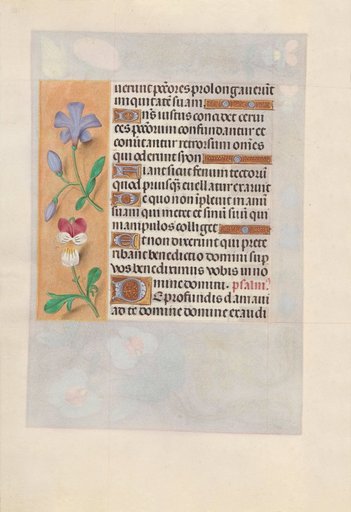 uerunt pctōres prolongauerūt
iniquitatē suam
Dn̄s iustus concidet cerui
ces pctorum confundantur et
conuertantur retrorsum om̄es
qui oderunt syon
Fiant sicut fenum tectorū
quod priusq̄ euellatur exaruit
De quo non ipleuit manū
suam qui metet et sinū suū qui
manipulos colliget
Et non dixerunt qui prete
ribant benedictio domini sup
vos benediximus vobis in no
mine domini. psalm⁹
De profundis clamaui
ad te domine domine exaudi